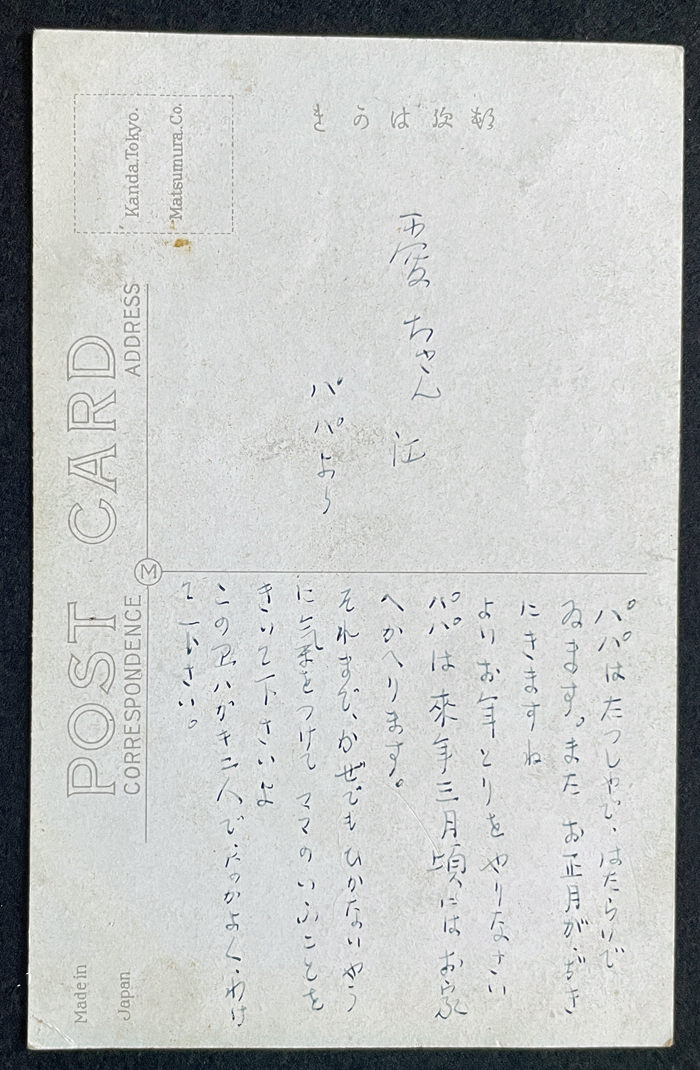 POST CARD
CORRESPONDENCE
ADDRESS
M
Matsumura.Co.
Kanda.Tokyo.
Made in
Japan
きかは便郵
愛ちゃん江
パパより
パパはたつしやで、はたらいて
ゐます。また お正月が ぢき
にきますね
よい お年とりをやりなさい
パパは來年三月頃にはお家
へかへります。
それまで、かぜでもひかないやう
に氣をつけて ママのいふことを
きいて下さいよ
このヱハガキ二人でなかよくわけ
て下さい。